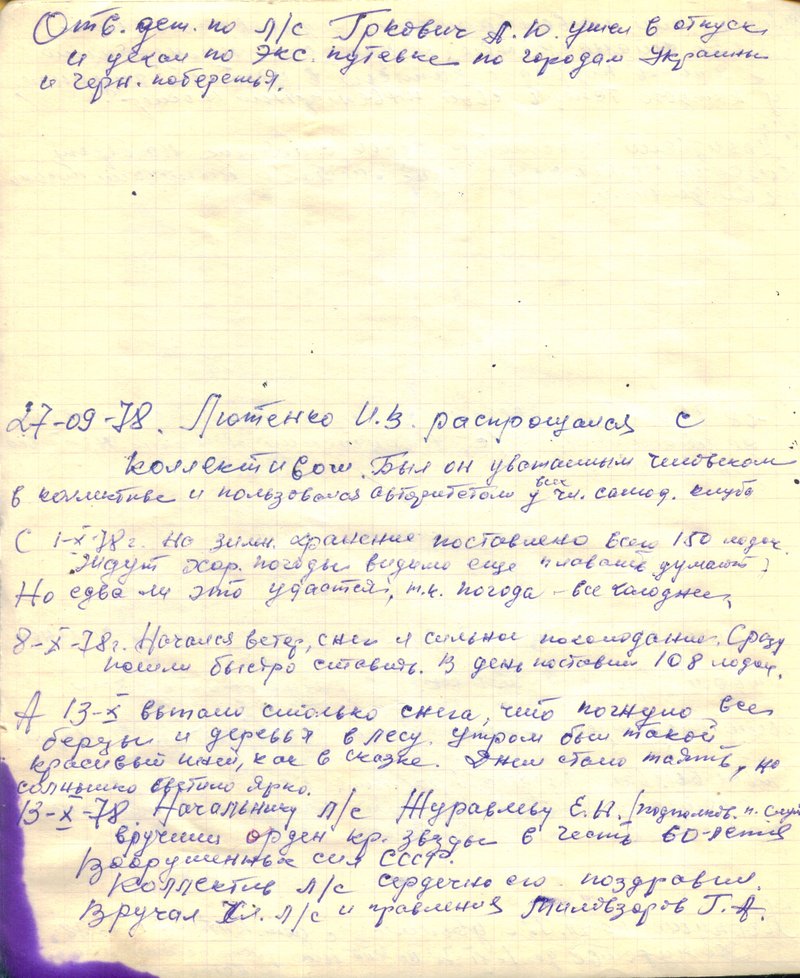 Отв. деж. по л/с Гркович А.Ю. ушел в отпуск
и уехал по экс. путевке по городам Украины
и черн. побережья.
27-09-78. Лютенко И.В. распрощался с
коллективом. Был он уважаемым человеком
в коллективе и пользовался авторитетом у всех чл. самод. клуба
С 1-X-78г. На зимн. хранение поставлено всего 150 лодок.
Ждут хор. погоды видимо еще плавать думают,
Но едва ли это удастся, т.к. погода - все холоднее,
8-X-78г. Начался ветер, снег и сильное похолодание. Сразу
пошли быстро ставить. В день поставили 108 лодок.
А 13-X выпало столько снега, что погнуло все
березы и деревья в лесу. Утром был такой
красивый иней, как в сказке. Днем стало таять, но
солнышко светило ярко.
13-X-78 Начальнику л/с Журавлеву Е.Н. (подполков. м. служ
вручили орден кр. звезды в честь 60-летия
Вооруженных сил СССР.
Коллектив л/с сердечно его поздравил.
Вручал л/с и правления Г.А.